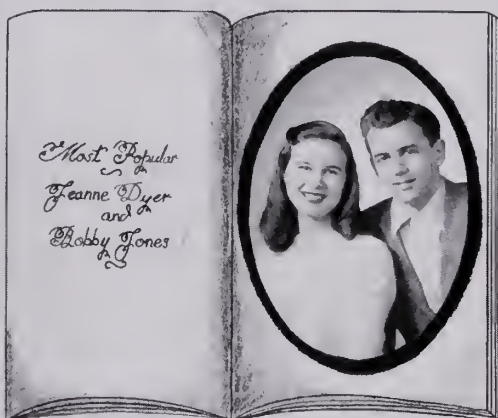 Most Popular
Jeanne Dyer
and
Bobby Jones